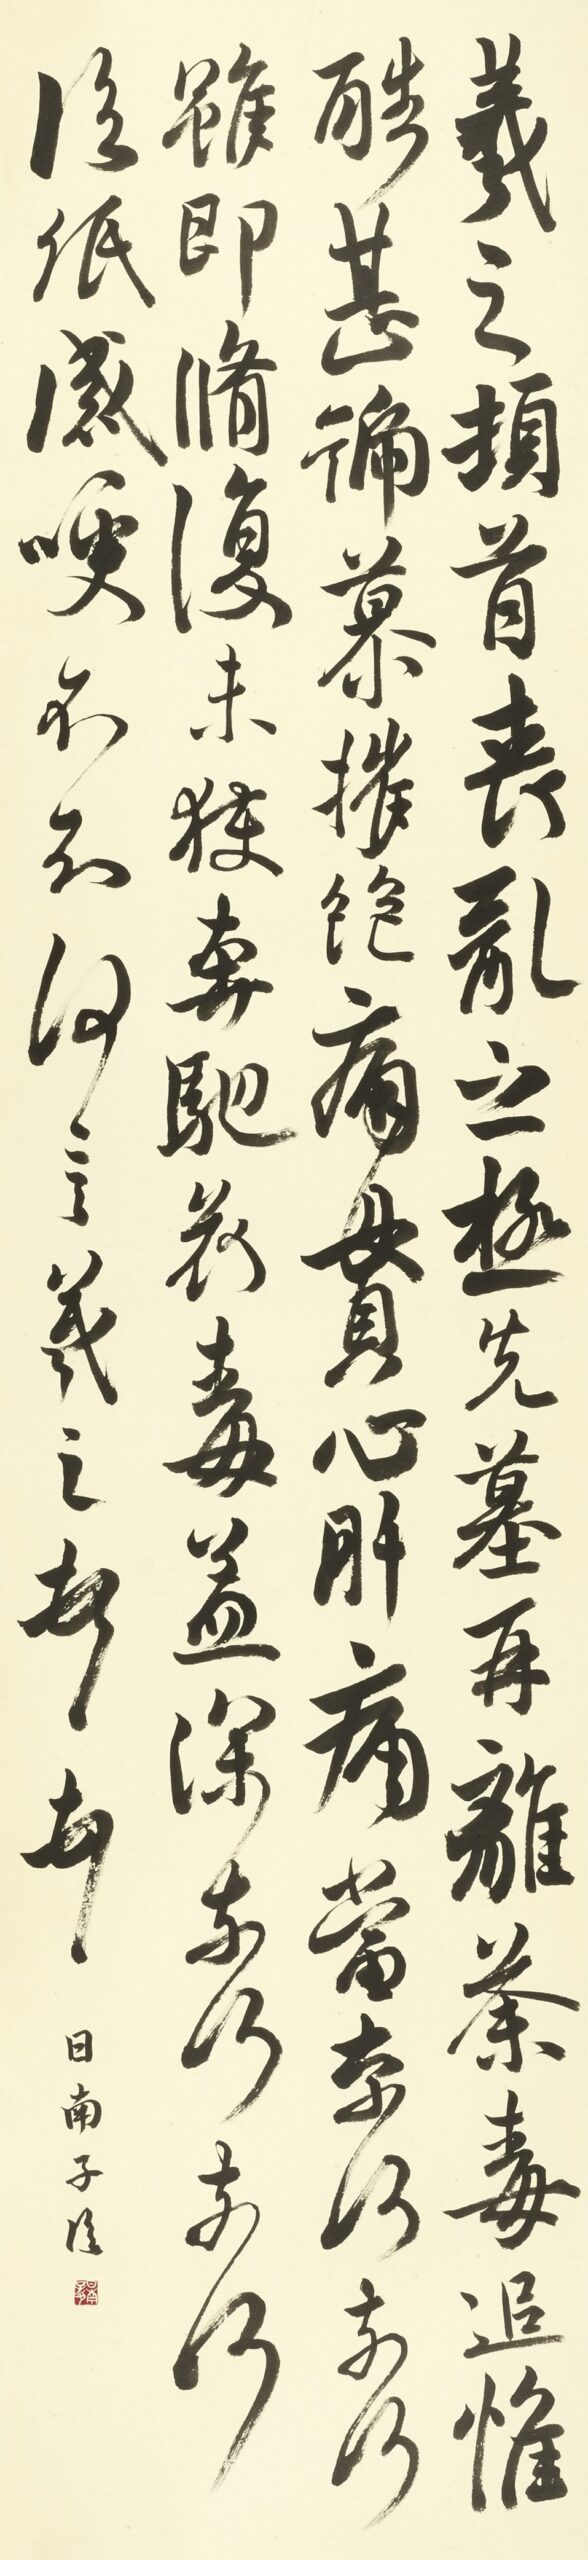 羲之頓首喪亂之極先墓再離荼毒追惟
酷甚號慕摧絶痛貫心肝痛當奈何奈何
雖即脩復未獲奔馳哀毒益深奈何奈何
臨紙感哽不知何言羲之頓首頓首
日南子臨